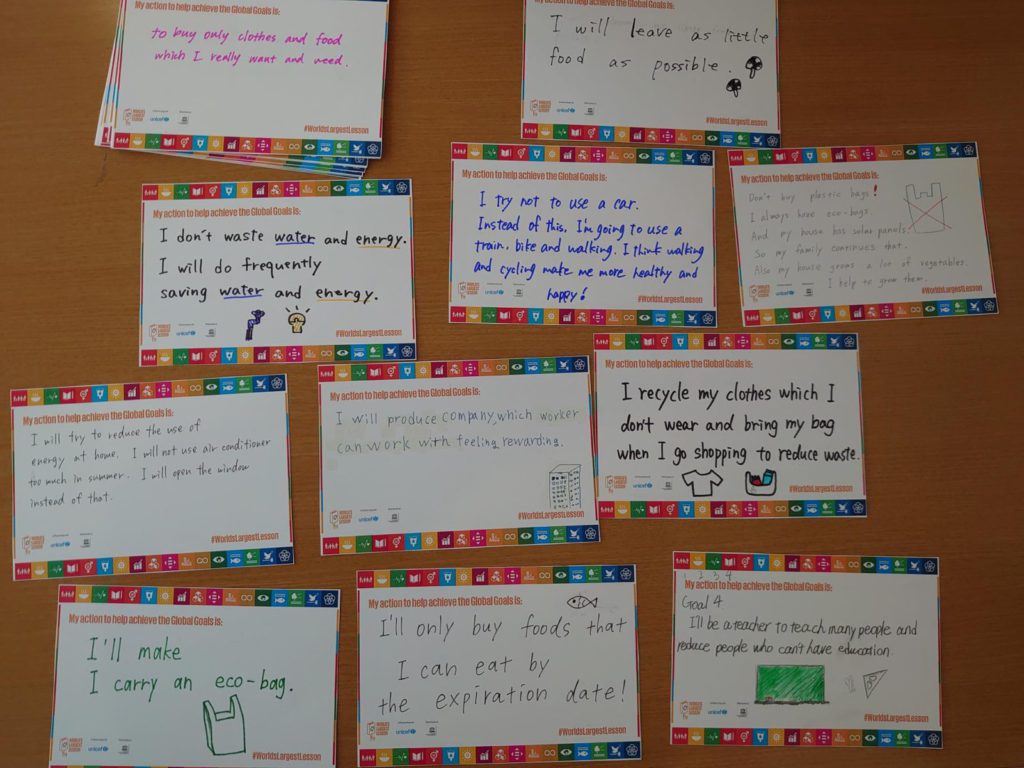 My action to help achieve the Global Goals is:
to buy only clothes and food
which I really want and need.
WORLD'S LARGEST LESSON
unicef
#WorldsLargestLesson
I will leave as little
food as possible.
WORLD'S LARGEST LESSON
unicef
#WorldsLargestLesson
My action to help achieve the Global Goals is:
I don't waste water and energy.
I will do frequently
saving water and energy.
WORLD'S LARGEST LESSON
unicef
#WorldsLargestLesson
My action to help achieve the Global Goals is:
I try not to use a car.
Instead of this, I'm going to use a
train, bike and walking. I think walking
and cycling make me more healthy and
happy!
WORLD'S LARGEST LESSON
unicef
#WorldsLargestLesson
My action to help achieve the Global Goals is:
Don't buy plastic bags!
I always have eco-bags.
And my house has solar panels.
So my family continues that.
Also my house grows a lot of vegetables.
I help to grow them.
WORLD'S LARGEST LESSON
unicef
#WorldsLargestLesson
My action to help achieve the Global Goals is:
I will try to reduce the use of
energy at home. I will not use air conditioner
too much in summer. I will open the window
instead of that.
WORLD'S LARGEST LESSON
unicef
#WorldsLargestLesson
My action to help achieve the Global Goals is:
I will produce company, which worker
can work with feeling rewarding.
WORLD'S LARGEST LESSON
unicef
#WorldsLargestLesson
My action to help achieve the Global Goals is:
I recycle my clothes which I
don't wear and bring my bag
when I go shopping to reduce waste.
WORLD'S LARGEST LESSON
unicef
#WorldsLargestLesson
My action to help achieve the Global Goals is:
I'll make
I carry an eco-bag.
WORLD'S LARGEST LESSON
unicef
#WorldsLargestLesson
My action to help achieve the Global Goals is:
I'll only buy foods that
I can eat by
the expiration date!
WORLD'S LARGEST LESSON
unicef
#WorldsLargestLesson
My action to help achieve the Global Goals is:
Goal 4
I'll be a teacher to teach many people and
reduce people who can't have education.
WORLD'S LARGEST LESSON
unicef
#WorldsLargestLesson